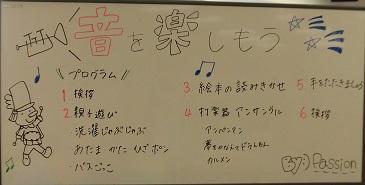 音を楽しもう
プログラム
1 挨拶
2 親子遊び
・洗濯じゃぶじゃぶ
・あたま かた ひざ ポン
・バスごっこ
3. 絵本の読みきかせ
4 打楽器 アンサンブル
アンパンマン
夢をかなえてドラえもん
カルメン
5. 手をたたきましょう
6 挨拶
By:) Passion